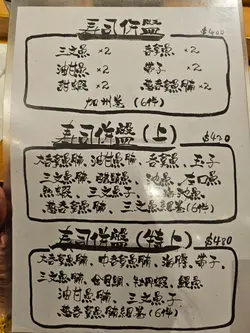 壽司併盤 $400
三文魚 ×2 吞拿魚 ×2
油甘魚 ×2 帶子 ×2
甜蝦 ×2 葱吞拿魚腩 ×2
加州卷(6件)
壽司併盤(上) $420
大吞拿魚腩、油甘魚腩、吞拿魚、玉子
三文魚腩、鯛魚、池魚、左口魚
熟蝦、三文魚子、魚
葱吞拿魚腩、三文魚細卷(6件)
壽司併盤(特上) $480
大吞拿魚腩、中吞拿魚腩、海膽、帶子、
三文魚腩、金目鯛、牡丹蝦、鰻魚
油甘魚腩、三文魚子
葱吞拿魚腩細卷(6件)